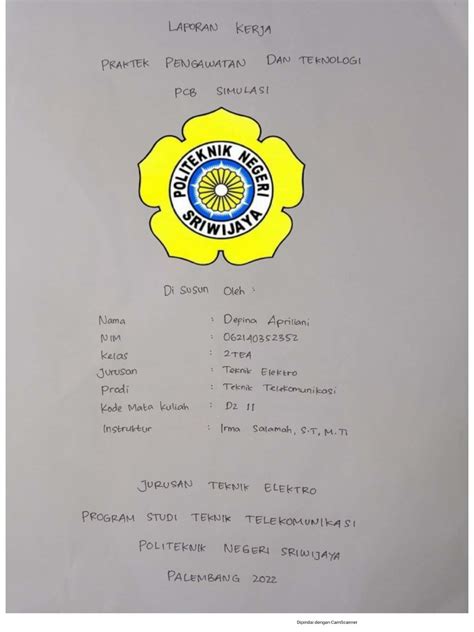 LAPORAN KERJA
PRAKTEK PENGAWATAN DAN TEKNOLOGI
PCB SIMULASI
POLITEKNIK NEGERI
SRIWIJAYA
Di susun oleh :
Nama : Depina Apriliani
NIM : 062140352352
Kelas : 2TEA
Jurusan : Teknik Elektro
Prodi : Teknik Telekomunikasi
Kode Mata Kuliah : D2 11
Instruktur : Irma Salamah, S.T, M.Ti
JURUSAN TEKNIK ELEKTRO
PROGRAM STUDI TEKNIK TELEKOMUNIKASI
POLITEKNIK NEGERI SRIWIJAYA
PALEMBANG 2022
Dipindai dengan CamScanner